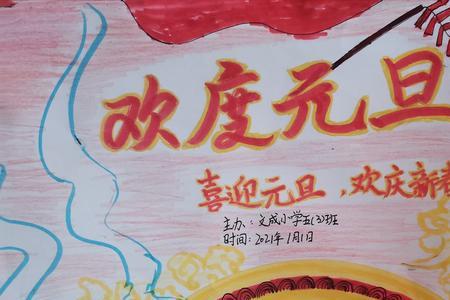 欢度元旦
喜迎元旦，欢庆新春
主办：文成小学五(3)班
时间：2021年1月1日